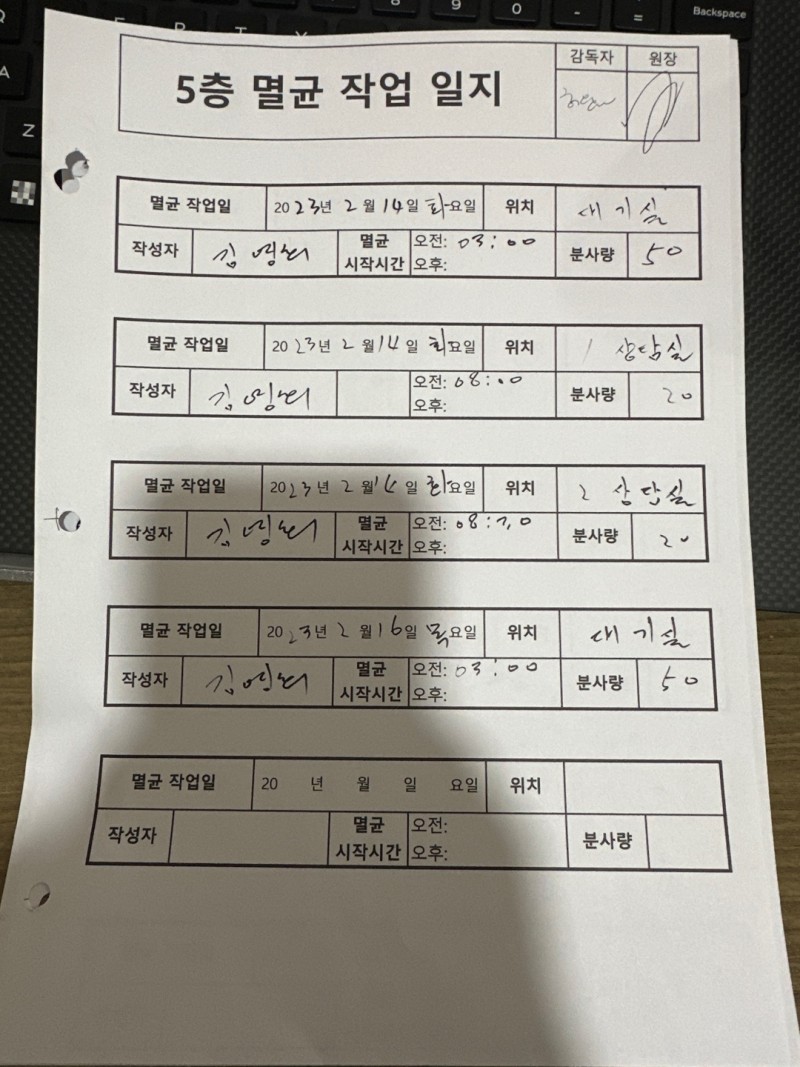 9 0 - =
Backspace
A
Z
5층 멸균 작업 일지
감독자 원장
멸균 작업일 2023년 2월 14일 화요일 위치 대기실
작성자 멸균 시작시간 오전: 03:00 오후: 분사량 50
멸균 작업일 2023년 2월 14일 화요일 위치 1 상담실
작성자 오전: 08:00 오후: 분사량 20
멸균 작업일 2023년 2월 14일 화요일 위치 2 상담실
작성자 멸균 시작시간 오전: 오후: 분사량 20
멸균 작업일 2023년 2월 16일 목요일 위치 대기실
작성자 멸균 시작시간 오전: 03:00 오후: 분사량 50
멸균 작업일 20 년 월 일 요일 위치
작성자 멸균 시작시간 오전: 오후: 분사량